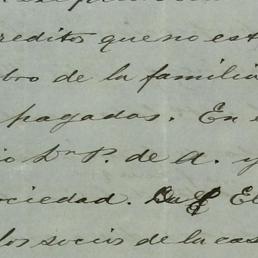 creditos que no est
bro de la familia
pagadas. En e
io Dn P. de A. y
ociedad. El
los socios de la cas